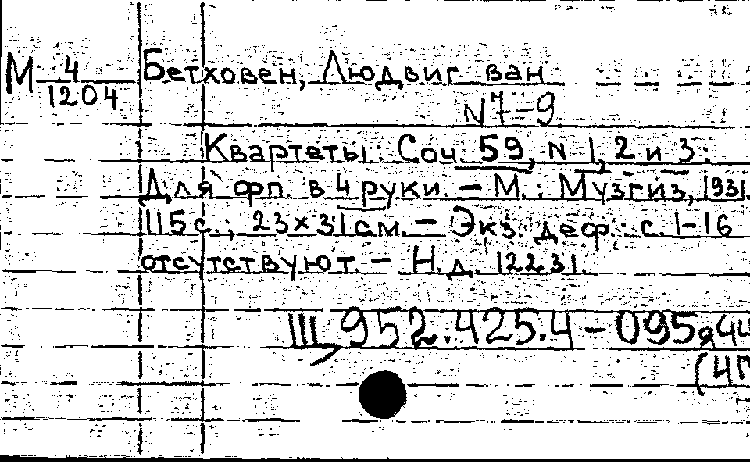 М 4/1204 Бетховен, Людвиг ван
N 7-9
Квартеты. Соч. 59, N 1, 2 и 3:
Для фп. в 4 руки. - М.: Музгиз, 1931.
115 с.; 23×31 см. - Экз. деф.: с. 1-16
отсутствуют. - Н.д. 12231.
III, 952.425.4-095я